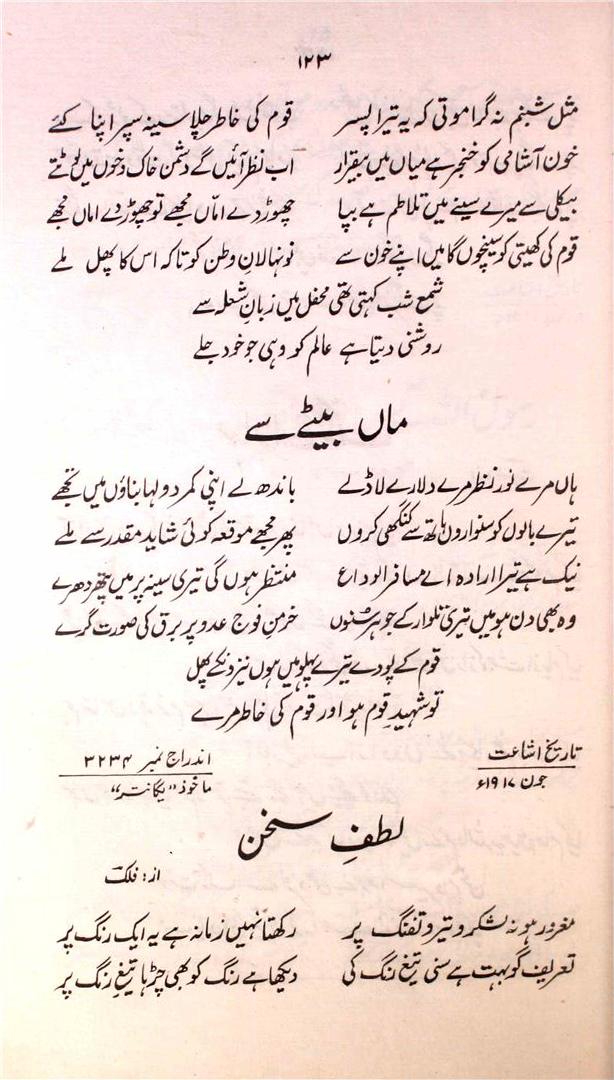 ۱۲۳
مثل شبنم نہ گرا موتی کہ یہ تیرا پسر قوم کی خاطر چلا سینہ سپر اپنا کئے
خون آشامی کو خنجر ہے میاں میں بیقرار اب نظر آئیں گے دشمن خاک و خوں میں لوٹتے
بیکلی سے میرے سینے میں تلاطم ہے بپا چھوڑ دے امّاں مجھے تو چھوڑ دے اماں مجھے
قوم کی کھیتی کو سینچوں گا میں اپنے خون سے نونہالانِ وطن کو تاکہ اس کا پھل ملے
شمع شب کہتی تھی محفل میں زبانِ شعلہ سے
روشنی دیتا ہے عالم کو وہی جو خود جلے
ماں بیٹے سے
ہاں مرے نور نظر مرے دلارے لاڈلے باندھ لے اپنی کمر دولہا بناؤں میں تجھے
تیرے بالوں کو سنواروں ہاتھ سے کنگھی کروں پھر مجھے موقعہ کوئی شاید مقدر سے ملے
نیک ہے تیرا ارادہ اے مسافر الوداع منتظر ہوں گی تیری سینہ پر میں پتھر دھرے
وہ بھی دن ہو میں تیری تلوار کے جوہر سُنوں خرمنِ فوج عدو پر برق کی صورت گرے
قوم کے پودے تیرے پہلو میں ہوں نیزونکے پھل
تو شہیدِ قوم ہو اور قوم کی خاطر مرے
تاریخ اشاعت اندراج نمبر ۳۲۳۴
جون ۱۹۱۷ء ماخوذ "یگانتر"
لطفِ سخن
از: فلک
مغرور ہو نہ لشکر و تیر و تفنگ پر رکھتا نہیں زمانہ ہے یہ ایک رنگ پر
تعریف گو بہت ہے سنی تیغ رنگ کی دیکھا ہے رنگ کو بھی چڑھا تیغِ رنگ پر